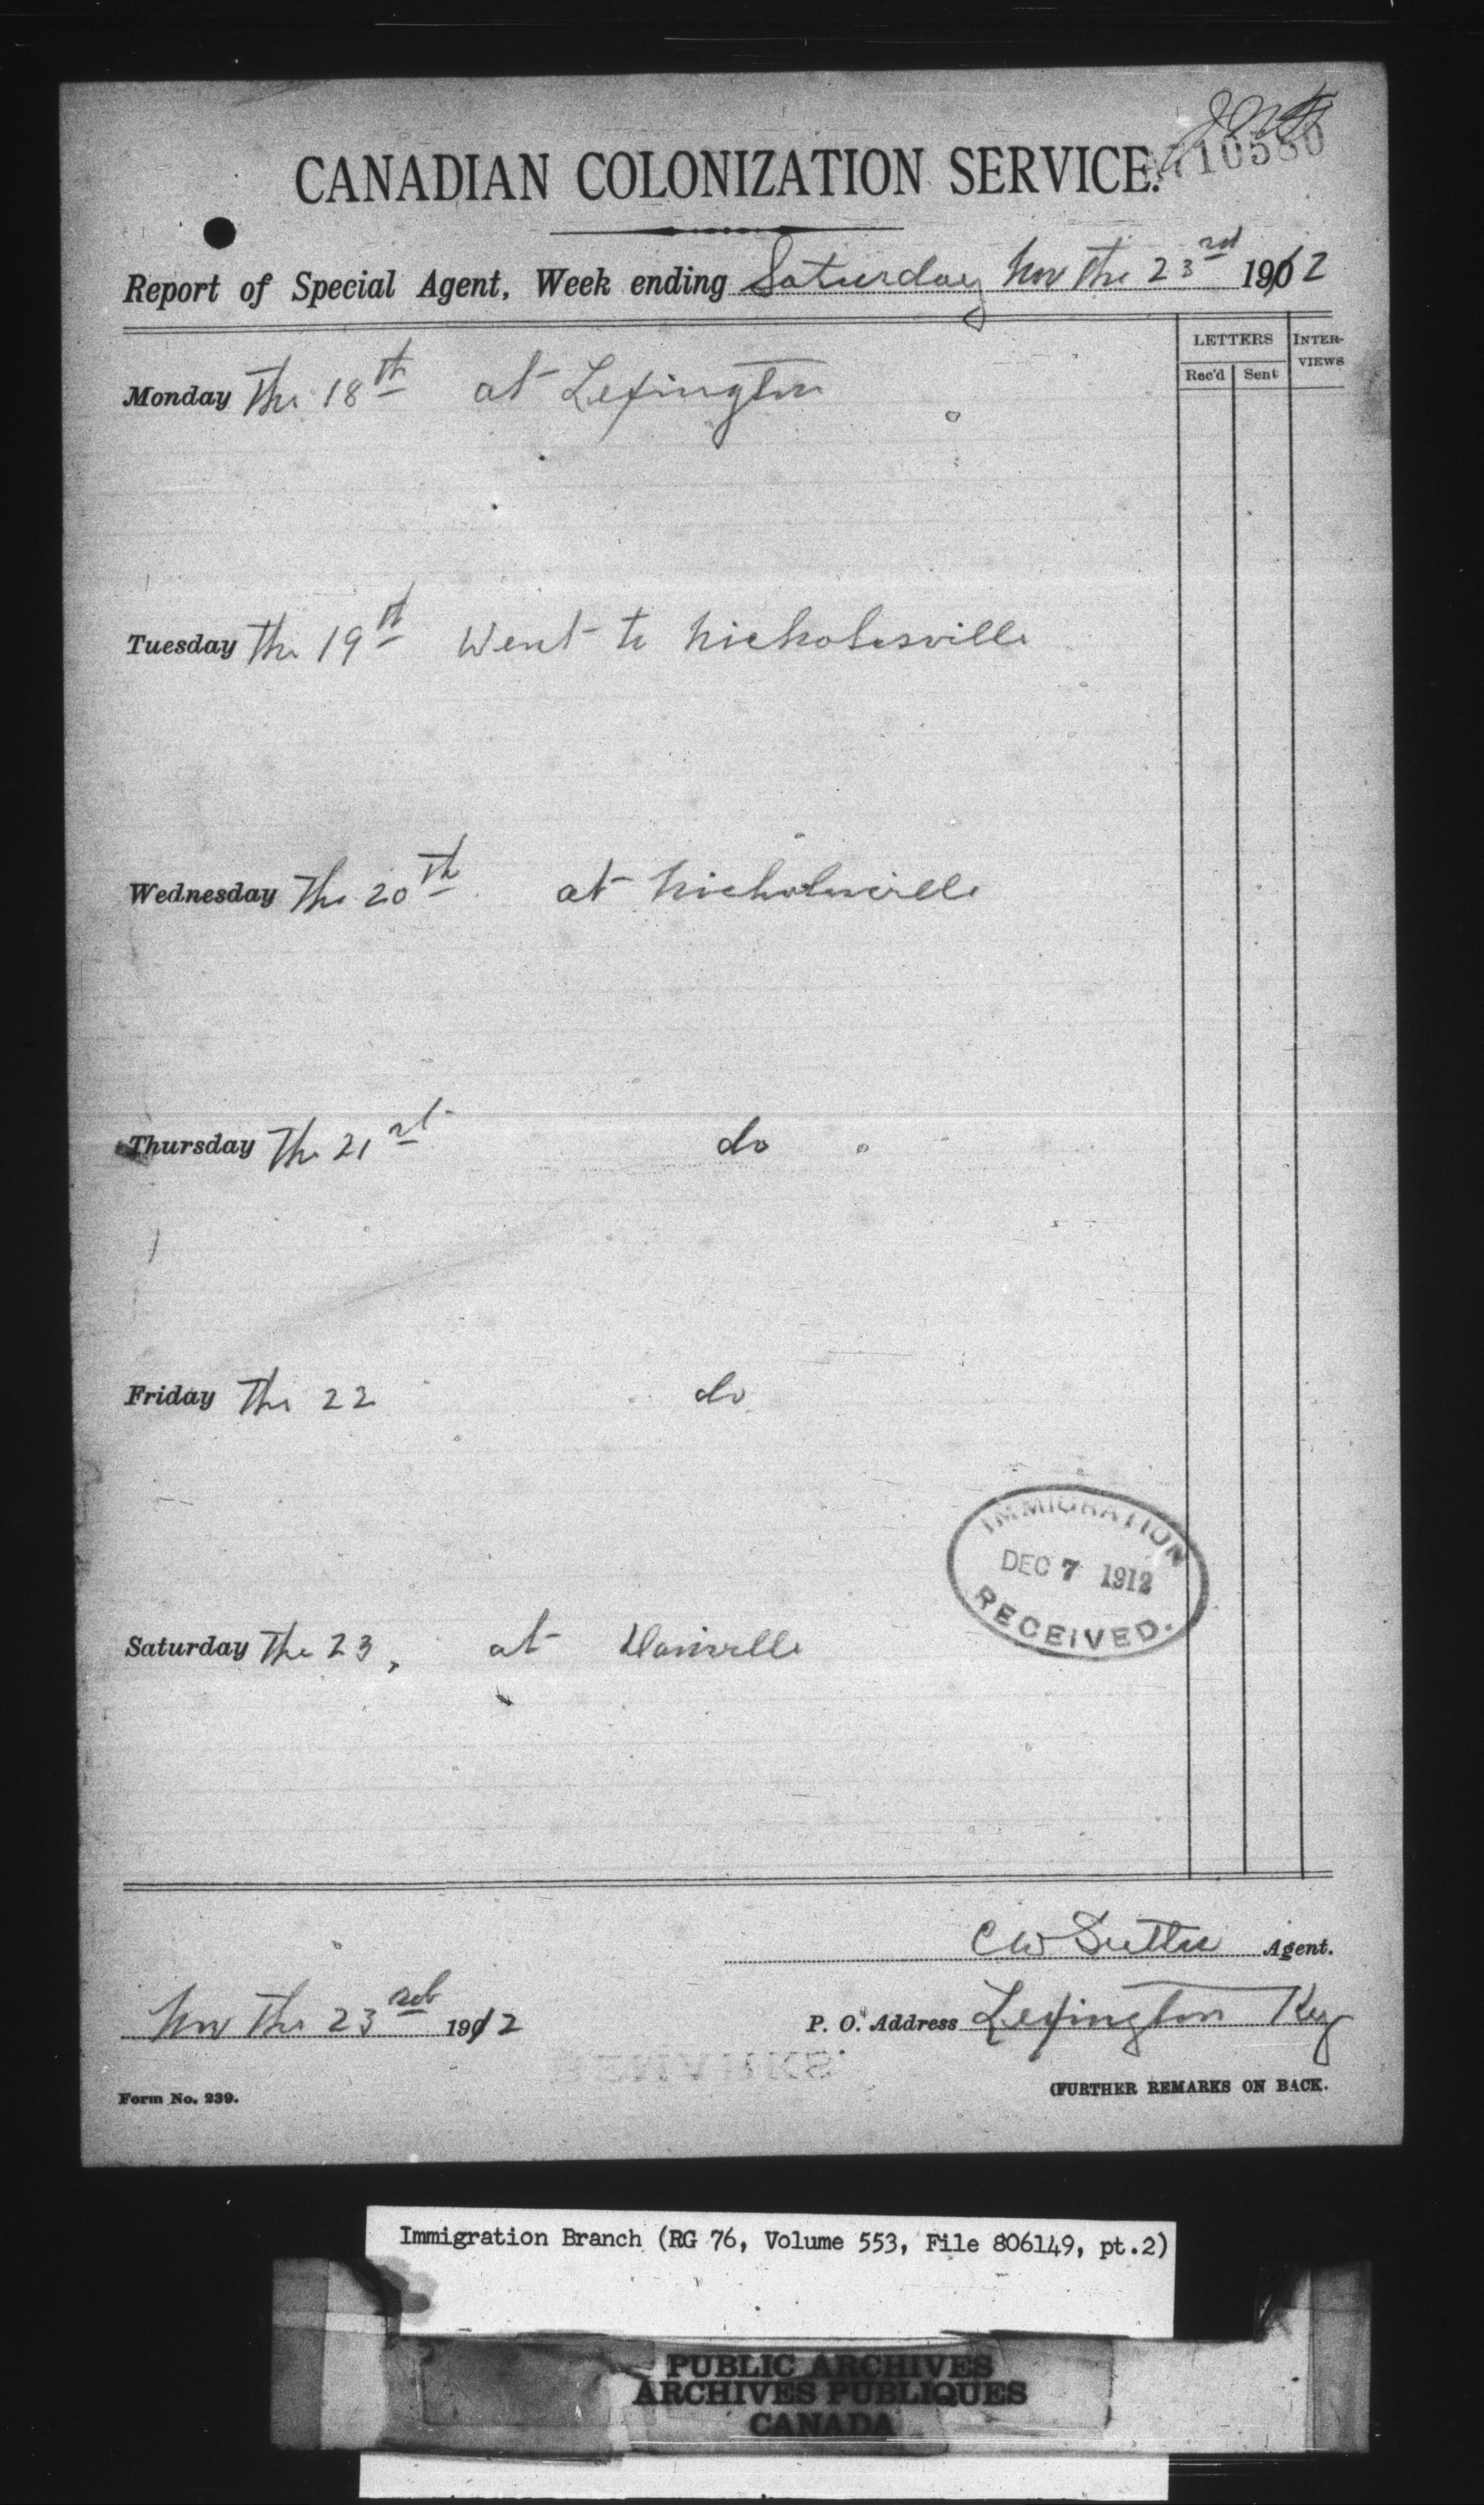 A710580
CANADIAN COLONIZATION SERVICE.
Report of Special Agent, Week ending Saturday Nov the 23rd 1912
LETTERS INTER-VIEWS
Rec'd Sent
Monday The 18th at Lexington
Tuesday The 19th Went to Nicholesville
Wednesday The 20th at Nicholasville
Thursday The 21st do
Friday The 22 do
IMMIGRATION
DEC 7 1912
RECEIVED.
Saturday The 23, at Danville
C W Suttie Agent.
Nov The 23rd 1912
P. O. Address Lexington Key
REMARKS.
Form No. 239.
(FURTHER REMARKS ON BACK.
Immigration Branch (RG 76, Volume 553, File 806149, pt.2)
PUBLIC ARCHIVES
ARCHIVES PUBLIQUES
CANADA